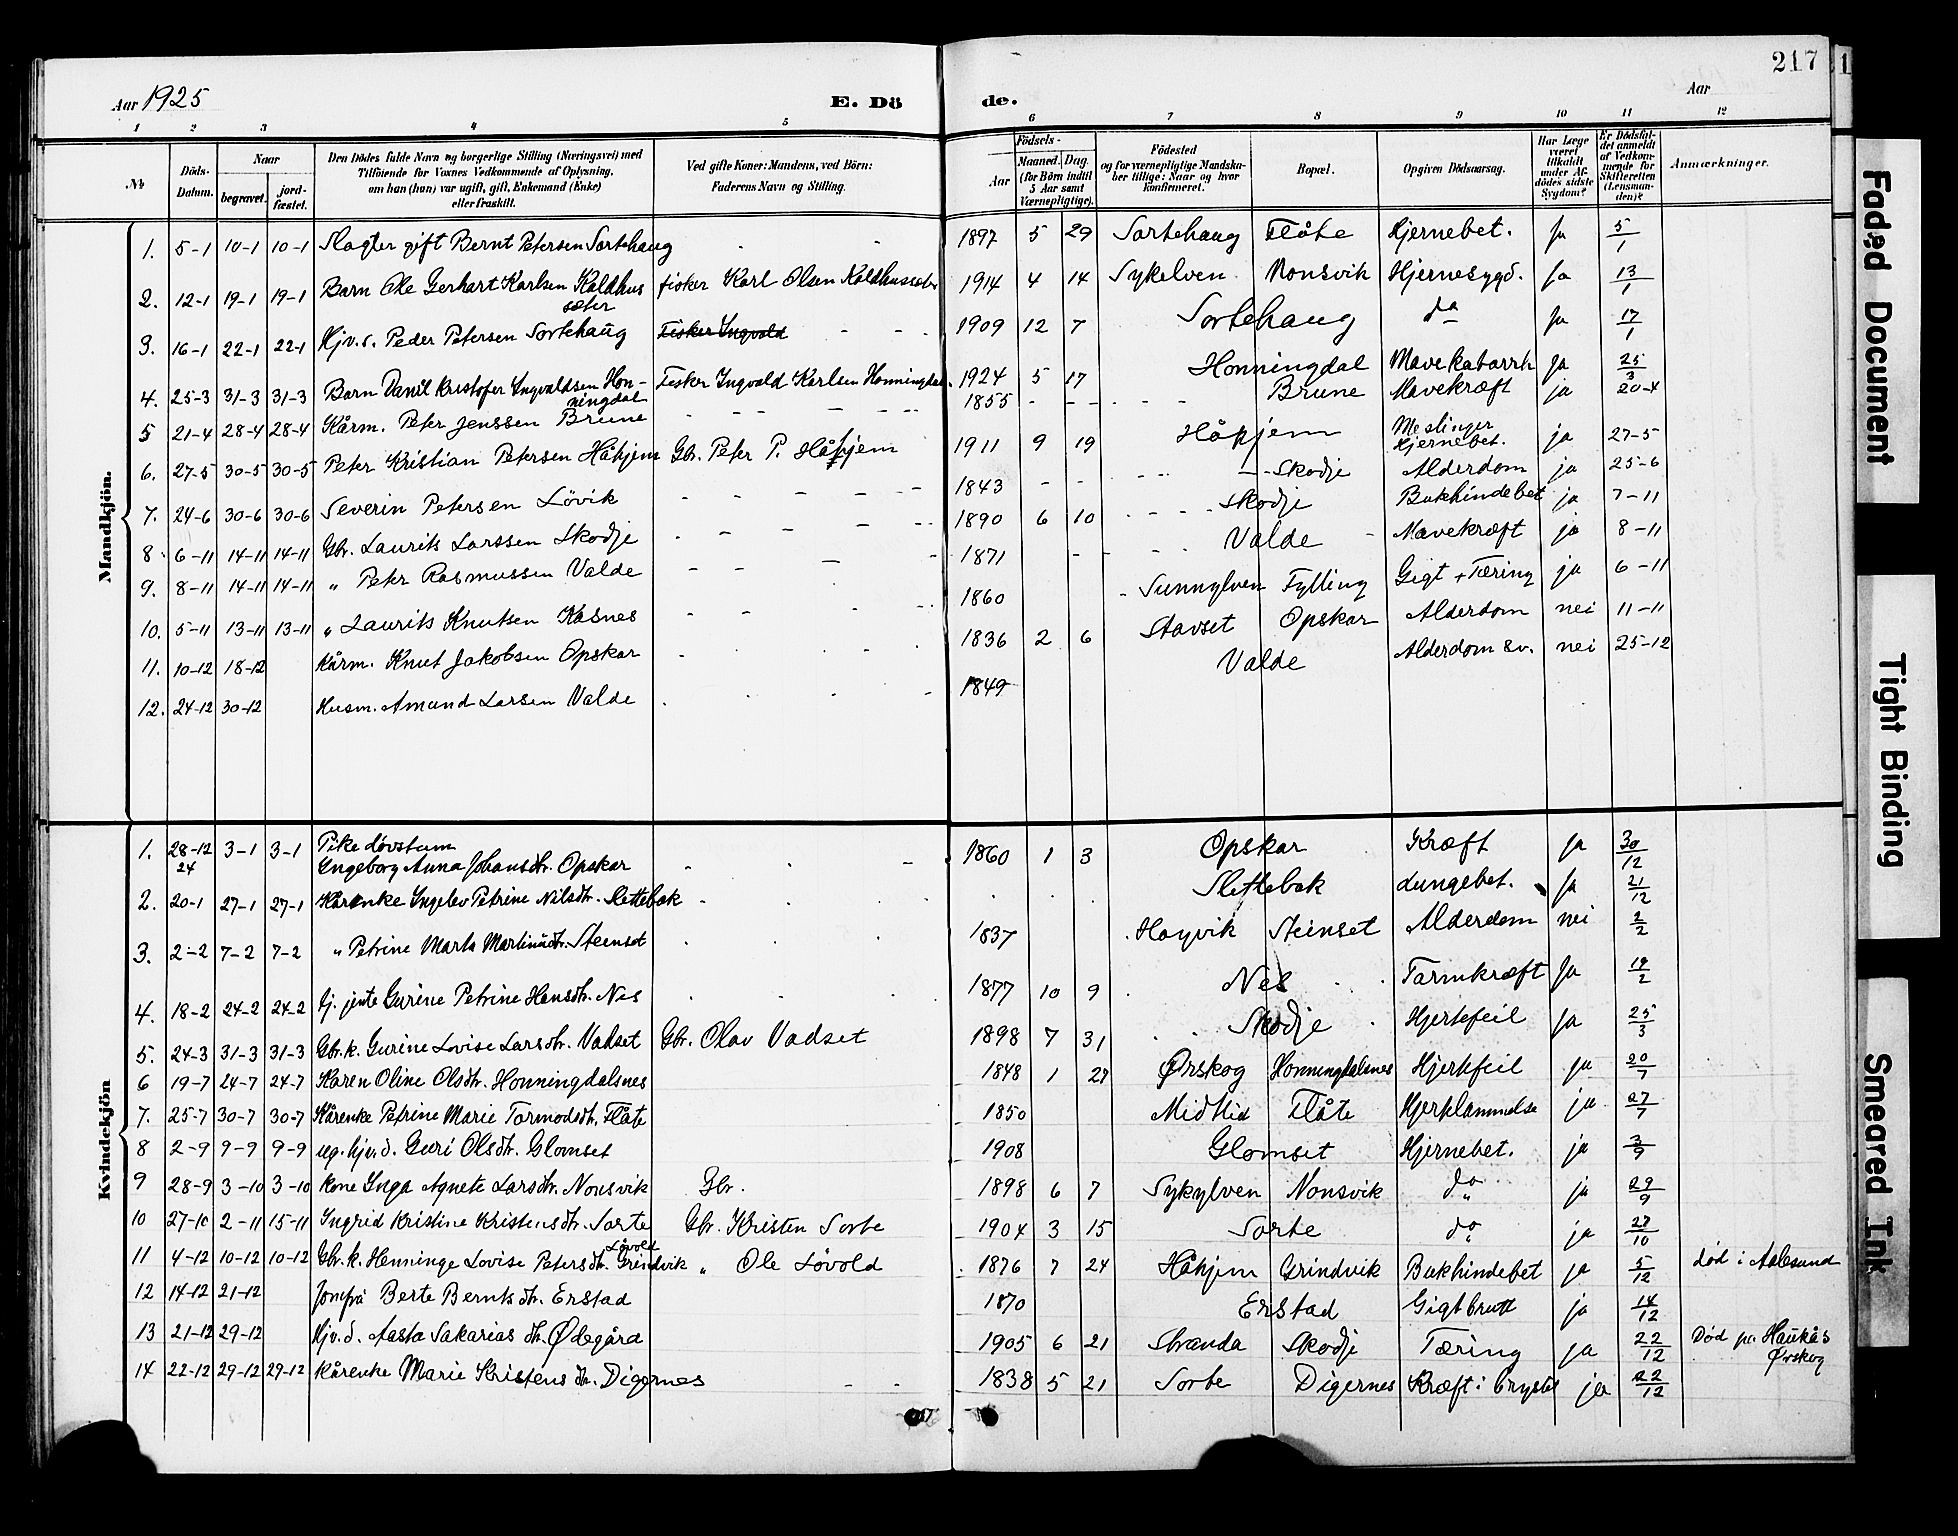 217
Aar 1925
E. Döde.
Aar
1 2 3 4 5 6 7 8 9 10 11 12
№
Döds-Datum.
Naar
begravet.
jord-fæstet.
Den Dödes fulde Navn og borgerlige Stilling (Næringsvei) med
Tilföiende for Voxnes Vedkommende af Oplysning,
om han (hun) var ugift, gift, Enkemand (Enke)
eller fraskilt.
Ved gifte Koner: Mandens, ved Börn:
Faderens Navn og Stilling.
Födsels-
Aar
Maaned. Dag.
(for Börn indtil
5 Aar samt
Værnepligtige).
Födested
og for værnepligtige Mandska-
ber tillige: Naar og hvor
konfirmeret.
Bopæl.
Opgiven Dödsaarsag.
Har Læge
været
tilkaldt
under Af-
dödes sidste
Sygdom?
Er Dödsfal-
det anmeldt
af Vedkom-
mende for
Skifteretten
(Lensman-
den)?
Anmærkninger.
Mandkjön.
1. 5-1 10-1 10-1 Slagter gift Bernt Petersen Sortehaug 1897 5 29 Sortehaug Flåte Hjernebet. Ja 5/1
2. 12-1 19-1 19-1 Barn Ole Gerhart Karlsen Kaldhus sæter fisker Karl Olsen Kaldhussæter 1914 4 14 Sykelven Nonsvik Hjernesygd. Ja 13/1
3. 16-1 22-1 22-1 Hjv.s. Peder Petersen Sortehaug Fisker Ingvald 1909 12 7 Sortehaug do Ja 17/1
4. 25-3 31-3 31-3 Barn Danil Kristofer Ingvaldsen Hon-ningdal Fisker Ingvald Karlsen Honningdal. 1924 5 17 Honningdal Mavekatarrh Ja 25/3
5 21-4 28-4 28-4 Kårm. Peter Jenssen Brune 1855 Brune Mavekræft ja 20-4
6. 27-5 30-5 30-5 Peter Kristian Petersen Håhjem Gbr. Peter P. Håhjem 1911 9 19 Håhjem Meslinger Hjernebet. ja 27-5
7. 24-6 30-6 30-6 Severin Petersen Lövik 1843 Skodje Alderdom ja 25-6
8. 6-11 14-11 14-11 Gbr. Laurits Larssen Skodje 1890 6 10 Skodje Bukhindebet ja 7-11
9. 8-11 14-11 14-11 " Peter Rasmussen Valde 1871 Valde Mavekræft ja 8-11
10. 5-11 13-11 13-11 " Laurits Knutsen Kasnes 1860 Sunnylven Fylling Gigt + Tæring ja 6-11
11. 10-12 18-12 Kårm. Knut Jakobsen Opskar 1836 2 6 Stavset Opskar Alderdom nei 11-11
12. 24-12 30-12 Husm. Amund Larsen Valde 1849 Valde Alderdom sv. nei 25-12
Kvindekjön
1. 28-12 24 3-1 3-1 Pike døvstum Ingeborg Anna Johansdtr. Opskar 1860 1 3 Opskar Kræft Ja 30/12
2. 20-1 27-1 27-1 Kårenke Ingelev Petrine Nilsdtr. Slettebak Slettebak Lungebet. Ja 21/12
3. 2-2 7-2 7-2 " Petrine Marta Martinusdtr. Steinset 1837 Høyvik Steinset Alderdom nei 2/2
4. 18-2 24-2 24-2 tj. jente Gurine Petrine Hansdtr. Nes 1877 10 9 Nes Tarmkræft Ja 19/2
5. 24-3 31-3 31-3 Gbr.k. Gurine Lovise Larsdtr. Vadset Gbr. Olav Vadset 1898 7 31 Skodje Hjertefeil Ja 25/3
6 19-7 24-7 24-7 Karen Oline Olsdtr. Honningdalsnes 1848 1 27 Ørskog Honningdalsnes Hjertefeil ja 20/7
7. 25-7 30-7 30-7 Kårenke Petrine Marie Tormodsdtr. Flåte 1850 Midtlid Flåte Hjertelammelse ja 27/7
8 2-9 9-9 9-9 ug. hjv.d. Guri Olsdtr. Glomset 1908 Glomset Hjernebet. ja 3/9
9 28-9 3-10 3-10 kone Inga Agnete Larsdtr. Nonsvik Gbr. 1898 6 7 Sykylven Nonsvik do ja 29/9
10 27-10 2-11 15-11 Ingrid Kristine Kristensdtr. Sorte Gbr. Kristen Sorte 1904 3 15 Sorte do ja 27/10
11 4-12 10-12 10-12 Gbr.k. Henninge Lovise Petersdtr. Grindvik Løvold " Ole Løvold 1876 7 24 Håhjem Grindvik Bukhindebet ja 5/12 død i Aalesund
12 14-12 21-12 Jomfru Berte Berntsdtr. Erstad 1870 Erstad Gigtbrutt ja 14/12
13 21-12 29-12 Hjv.d. Aasta Sakariasdtr. Ødegård 1905 6 21 Stranda Skodje Tæring ja 22/12 Død på Haukås Ørskog
14 22-12 29-12 29-12 Kårenke Marie Kristensdtr. Digernes 1838 5 21 Sorte Digernes Kræft i brystet ja 22/12
Faded Document
Tight Binding
Smeared Ink